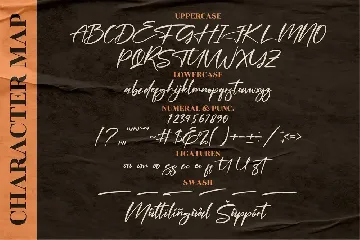 CHARACTER MAP
UPPERCASE
ABCDEFGHIJKLMNO
PQRSTUVWXYZ
LOWERCASE
abcdefghijklmnopqrstuvwxyz
NUMERAL & PUNC.
1234567890
LIGATURES
SWASH
Multilingual Support